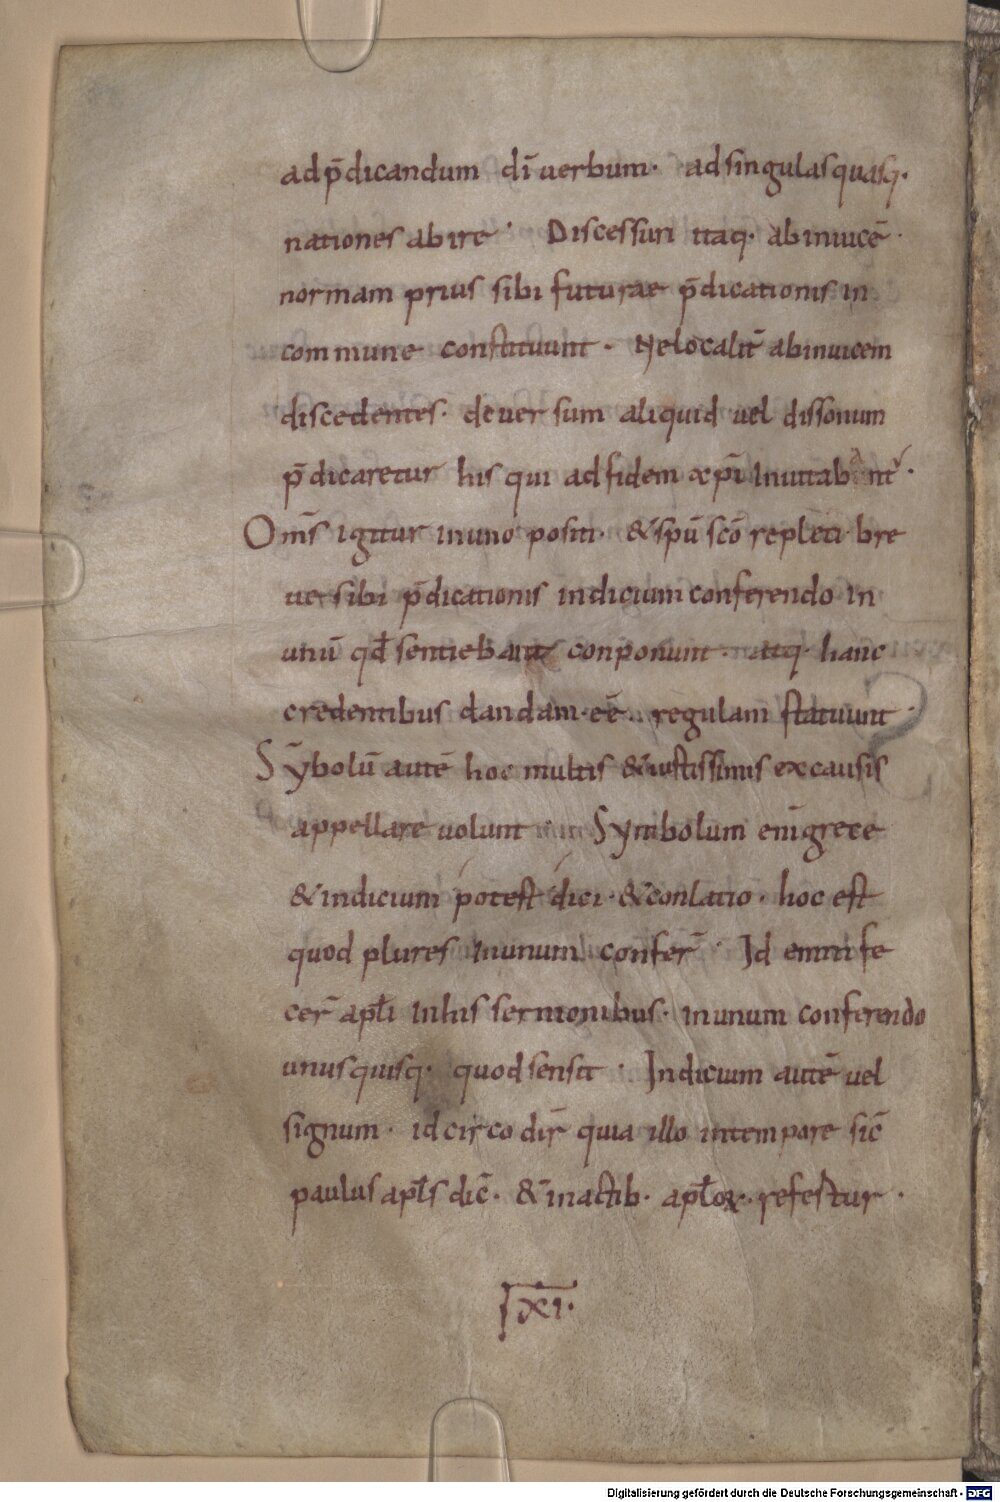 adp̄dicandum dī uerbum· adsingulasquasq·
nationes abire· Discessuri itaq· abinuicē·
normam prius sibi futurae p̄dicationis in
commune constituunt· Nelocalit̄ abinuicem
discedentes· deuersum aliquid uel dissonum
p̄dicaretur his qui adfidem xp̄i Inuitabant·
Om̄s igitur inuno positi· &spū scō repleti· bre
ue sibi p̄dicationis indicium conferendo In
unū qđ sentiebant conponunt· atq· hanc
credentibus dandam· eē· regulam statuunt·
Sȳbolū autē hoc multis &iustissimis excausis
appellare uolunt· Symbolum enī grece
&indicium potest dici· &conlatio· hoc est
quod plures Inunum confer̄· Id enim fe
cer̄ apłi Inhis sermonibus· Inunum conferendo
unusquisq· quodsensit· Indicium autē uel
signum· idcirco dir̄ quia illo intempore sic̄
paulus apłs dic̄· & inactib· apłoꝝ· refestur·
XI·
Digitalisierung gefördert durch die Deutsche Forschungsgemeinschaft - DFG